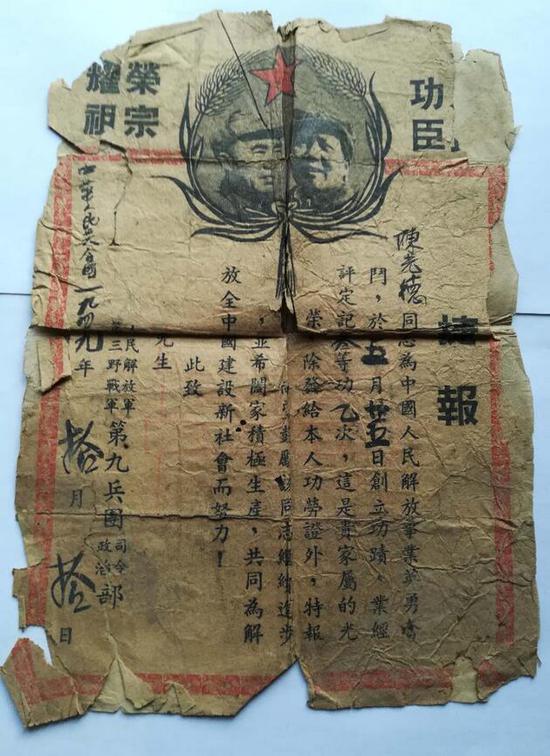 功臣
榮宗
耀祖
捷報
陳光德同志為中國人民解放事業英勇奮
鬥,於五月廿五日創立功蹟。業經
評定記叁等功乙次,這是貴家屬的光
榮,除發給本人功勞證外,特報
屬該同志繼續進步
,並希闔家積極生產,共同為解
放全中國建設新社會而努力!
此致
先生
人民解放軍
第三野戰軍
第九兵團
司令
政治
部
中華人民共和國一九四九年拾月拾日